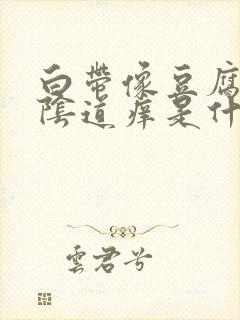 白带像豆腐
陰道痒是什
雲君兮